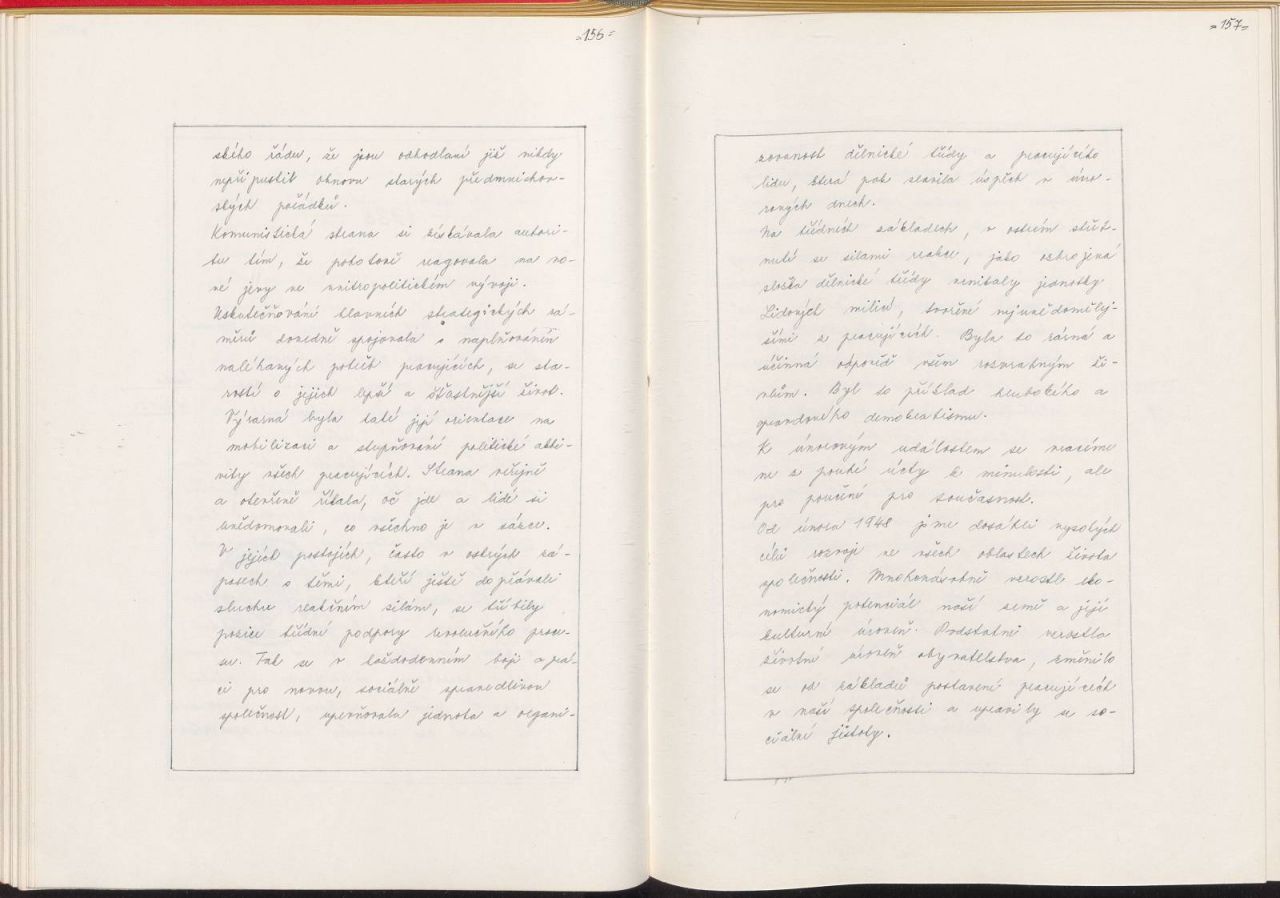 =156=
ského řádu, že jsou odhodlaní již nikdy
nepřipustit obnovu starých předmnichov-
ských pořádků.
Komunistická strana si získávala autori-
tu tím, že pohotově reagovala na no-
vé jevy ve vnitropolitickém vývoji.
Uskutečňování hlavních strategických zá-
měrů dovedně spojovala s naplňováním
naléhavých potřeb pracujících, se sta-
rostí o jejich lepší a šťastnější život.
Výrazná byla také její orientace na
mobilizaci a stupňování politické akti-
vity všech pracujících. Strana veřejně
a otevřeně říkala, oč jde a lidé si
uvědomovali, co všechno je v sázce.
V jejích postojích, často v ostrých zá-
pasech s těmi, kteří ještě dopřávali
sluchu reakčním silám, se tříbily
pozice třídní podpory revolučního proce-
su. Tak se v každodenním boji a prá-
ci pro novou, sociálně spravedlivou
společnost, upevňovala jednota a organi-
=157=
zovanost dělnické třídy a pracujícího
lidu, která pak slavila úspěch v úno-
rových dnech.
Na třídních základech, v ostrém střet-
nutí se silami reakce, jako ozbrojená
složka dělnické třídy vznikaly jednotky
Lidových milicí, tvořené nejuvědomělej-
šími z pracujících. Byla to rázná a
účinná odpověď všem rozvratným ži-
vlům. Byl to příklad hlubokého a
opravdového demokratismu.
K únorovým událostem se vracíme
ne z pouhé úcty k minulosti, ale
pro poučení pro současnost.
Od února 1948 jsme dosáhli vysokých
cílů rozvoje ve všech oblastech života
společnosti. Mnohonásobně vzrostl eko-
nomický potenciál naší země a její
kulturní úroveň. Podstatně vzrostla
životní úroveň obyvatelstva, změnilo
se od základů postavení pracujících
v naší společnosti a upevnily se so-
ciální jistoty.